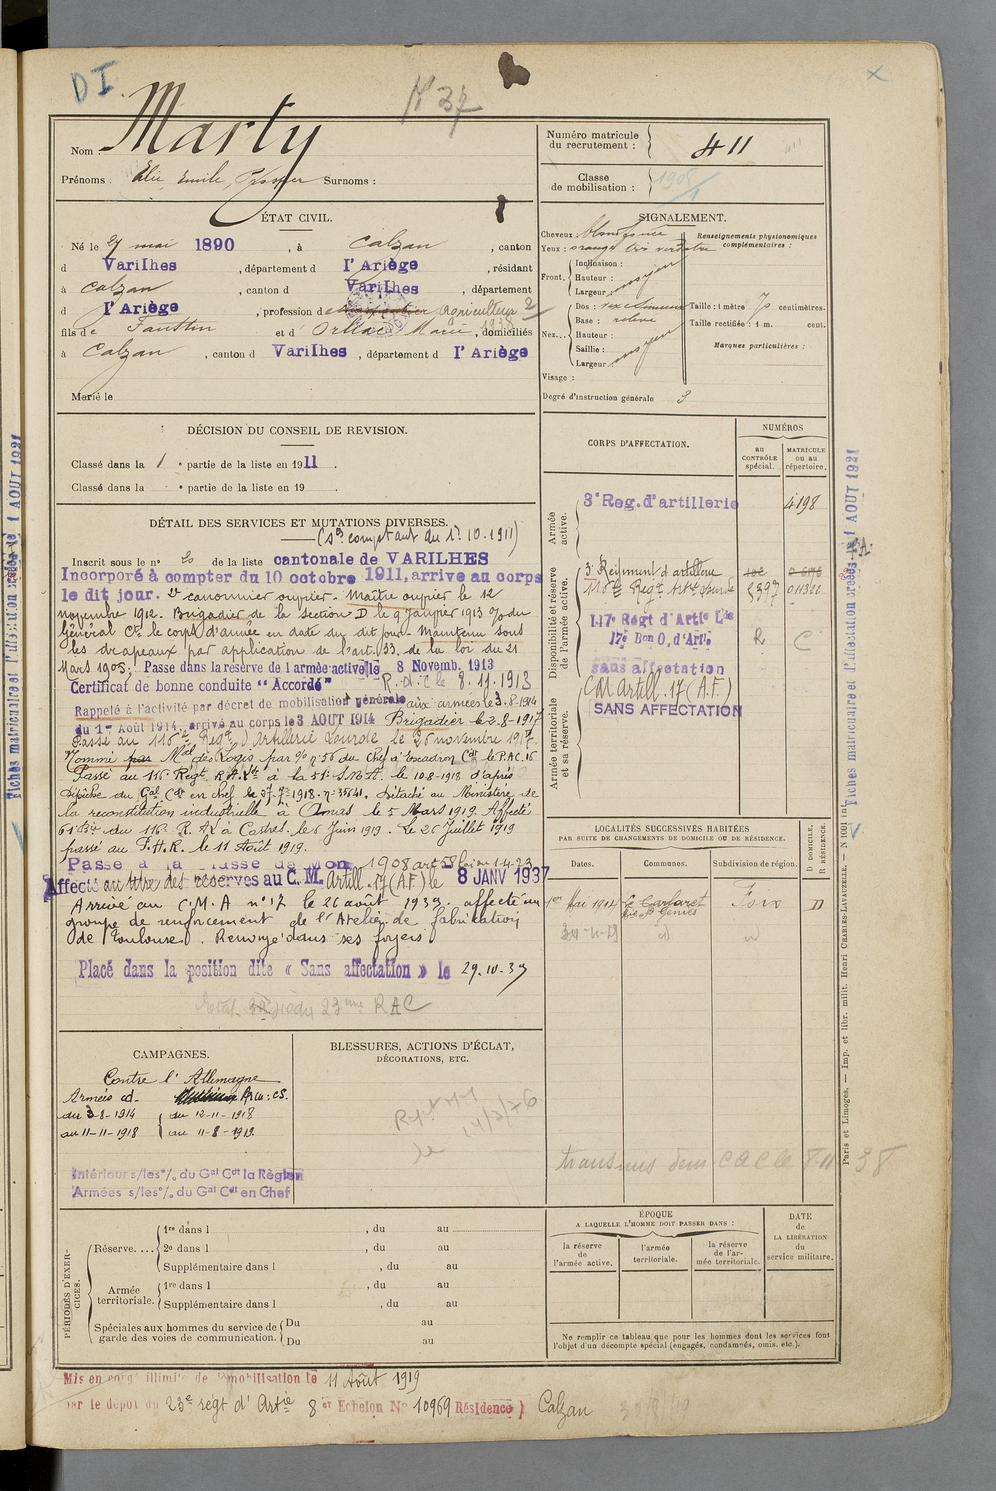 DI.
M 37
Nom : Marty
Prénoms : Elie, Emile, Prosper Surnoms :
Numéro matricule du recrutement : 411
Classe de mobilisation : 1908/1
ÉTAT CIVIL.
Né le 27 mai 1890, à Calzan, canton
d Varilhes, département d l'Ariège, résidant
à Calzan, canton d Varilhes, département
d l'Ariège, profession de charpentier agriculteur
1938
fils de Faustin et d' Orliac Marie, domiciliés
à Calzan, canton d Varilhes, département d l'Ariège
Marié le
SIGNALEMENT.
Cheveux : blond foncé
Yeux : orange verdâtre
Renseignements physionomiques complémentaires :
Front.
Inclinaison :
Hauteur :
Largeur : moyen
Nez...
Dos : rectiligne
Base : relevé
Hauteur :
Saillie :
Largeur : moyen
Taille : 1 mètre 70 centimètres.
Taille rectifiée : 1 m. cent.
Marques particulières :
Visage :
Degré d'instruction générale 3
DÉCISION DU CONSEIL DE REVISION.
Classé dans la 1 e partie de la liste en 1911.
Classé dans la e partie de la liste en 19
CORPS D'AFFECTATION.
NUMÉROS
au CONTRÔLE spécial.
MATRICULE ou au répertoire.
Armée active.
3e Reg. d'artillerie 4198
Disponibilité et réserve de l'armée active.
3e Régiment d'artillerie
116e Regt Artie lourde 5397 011322
117e Régt d'Artie Lde
17e Bon O, d'Artie R C
sans affectation
Armée territoriale et sa réserve.
CM Artill. 17 (A.F.)
SANS AFFECTATION
DÉTAIL DES SERVICES ET MUTATIONS DIVERSES.
(Sce comptant du 1er.10.1911)
Inscrit sous le n° de la liste cantonale de VARILHES
Incorporé à compter du 10 octobre 1911, arrive au corps
le dit jour. 2e canonnier ouvrier. Maître ouvrier le 12
novembre 1912. Brigadier de la section D le 9 Janvier 1913 % du
Général Ct le corps d'armée en date du dit jour. Maintenu sous
les drapeaux par application de l'art. 33 de la loi du 21
Mars 1905. Passe dans la réserve de l'armée active le 8 Novemb. 1913
Certificat de bonne conduite "Accordé" R. d. C le 8.11.1913
Rappelé à l'activité par décret de mobilisation générale aux armées le 3.8.1914
du 1er Août 1914, arrivé au corps le 3 AOUT 1914 Brigadier le 2-8-1917
Passé au 116e Regt d'Artillerie Lourde le 26 novembre 1917.
Nommé Mal des Logis par % n° 56 du Chef d'Escadron Ct le P.A.C. 16
Passé au 116 Régt. R.A.Lde à la 51e S.M.A. le 10-8-1918 d'après
dépêche du Gal Ct en chef le 27-7-1918. n° 35141. Détaché au Ministère de
la reconstitution industrielle à le 5 Mars 1919. Affecté
61e Bie du 116e R.A.L à Castres. le 6 Juin 1919. Le 26 Juillet 1919
passé au P.H.R. le 11 Août 1919.
Passé à la classe de Mon 1908 art 58 loi du 1-4-23
Affecté au titre des réserves au C.M. Artill. 17 (A.F.) le 8 JANV 1937
Arrivé au C.M.A n° 17 le 26 août 1939. affecté au
groupe de renforcement de l'Atelier de fabrication
de Toulouse. Renvoyé dans ses foyers
Placé dans la position dite « Sans affectation » le 29.10.39
23me RAC
LOCALITÉS SUCCESSIVES HABITÉES
PAR SUITE DE CHANGEMENTS DE DOMICILE OU DE RÉSIDENCE.
Dates. Communes. Subdivision de région. D DOMICILE, R RÉSIDENCE.
1er Mai 1914 le Carlaret Foix D
CAMPAGNES.
Contre l'Allemagne
du 3-8-1914 du 12-11-1918
au 11-11-1918 au 11-8-1919
Intérieur s/les % du Gal Cdt la Région
Armées s/les % du Gal Cdt en Chef
BLESSURES, ACTIONS D'ÉCLAT,
DÉCORATIONS, ETC.
le
transmis CACle 8-11-38
PÉRIODES D'EXERCICES.
Réserve....
1re dans l , du au
2e dans l , du au
Supplémentaire dans l , du au
Armée territoriale.
1re dans l , du au
Supplémentaire dans l , du au
Spéciales aux hommes du service de garde des voies de communication.
Du au
Du au
ÉPOQUE
A LAQUELLE L'HOMME DOIT PASSER DANS :
la réserve de l'armée active.
l'armée territoriale.
la réserve de l'armée territoriale.
DATE de LA LIBÉRATION du service militaire.
Ne remplir ce tableau que pour les hommes dont les services font
l'objet d'un décompte spécial (engagés, condamnés, omis, etc.).
Mis en congé illimité de démobilisation le 11 Août 1919
par le dépôt du 23e regt d'Artie 8e Echelon N° 10969 Résidence } Calzan
Paris et Limoges. — Imp. et libr. milit. Henri CHARLES-LAVAUZELLE. — N° 1001